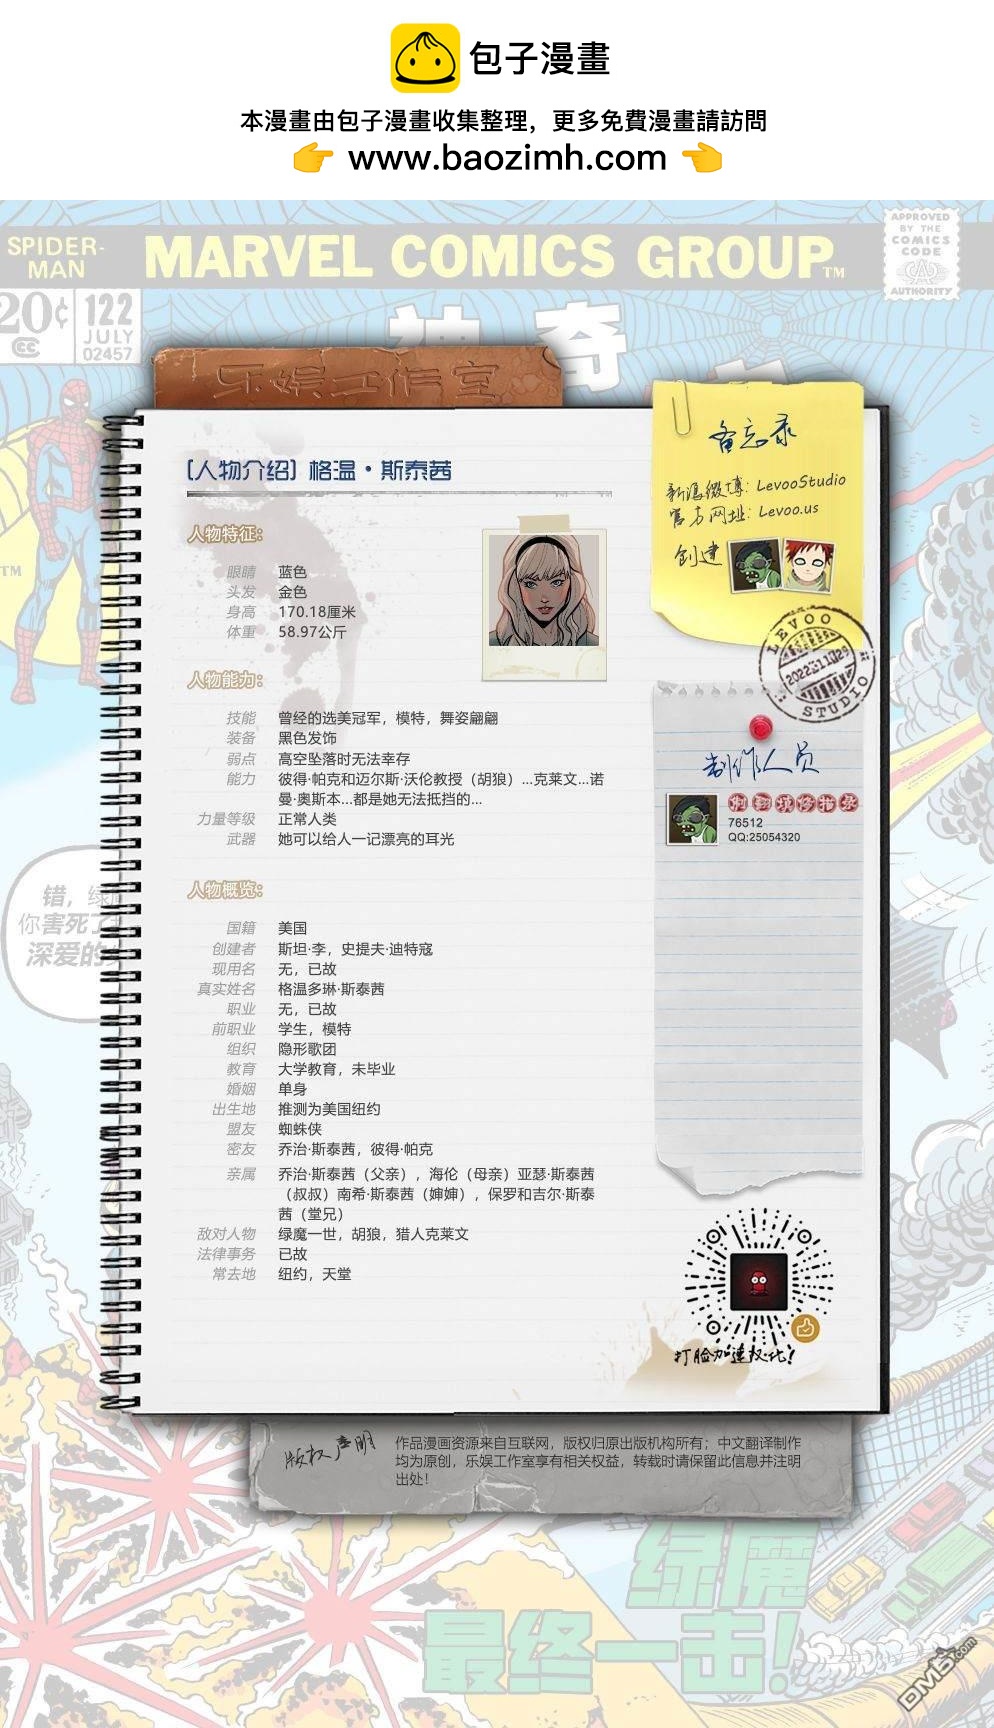 包子漫畫
本漫畫由包子漫畫收集整理，更多免費漫畫請訪問
www.baozimh.com
SPIDER-
MAN
MARVEL COMICS GROUP TM
APPROVED
BY THE
COMICS
CODE
AUTHORITY
20¢
CC
122
JULY
02457
神奇
乐娱工作室
备忘录
新浪微博: LevooStudio
官方网址: Levoo.us
创建
LEVOO
2022S11029
STUDIO
[人物介绍] 格温·斯泰茜
人物特征:
眼睛 蓝色
头发 金色
身高 170.18厘米
体重 58.97公斤
人物能力:
技能 曾经的选美冠军，模特，舞姿翩翩
装备 黑色发饰
弱点 高空坠落时无法幸存
能力 彼得·帕克和迈尔斯·沃伦教授（胡狼）...克莱文...诺
曼·奥斯本...都是她无法抵挡的...
力量等级 正常人类
武器 她可以给人一记漂亮的耳光
人物概览:
国籍 美国
创建者 斯坦·李，史提夫·迪特寇
现用名 无，已故
真实姓名 格温多琳·斯泰茜
职业 无，已故
前职业 学生，模特
组织 隐形歌团
教育 大学教育，未毕业
婚姻 单身
出生地 推测为美国纽约
盟友 蜘蛛侠
密友 乔治·斯泰茜，彼得·帕克
亲属 乔治·斯泰茜（父亲），海伦（母亲）亚瑟·斯泰茜
（叔叔）南希·斯泰茜（婶婶），保罗和吉尔·斯泰
茜（堂兄）
敌对人物 绿魔一世，胡狼，猎人克莱文
法律事务 已故
常去地 纽约，天堂
制作人员
制翻填修描录
76512
QQ:25054320
TM
错，绿
你害死了
深爱的
打脸加速汉化!
版权声明
作品漫画资源来自互联网，版权归原出版机构所有；中文翻译制作
均为原创，乐娱工作室享有相关权益，转载时请保留此信息并注明
出处！
绿魔
最终一击!
DM5.com